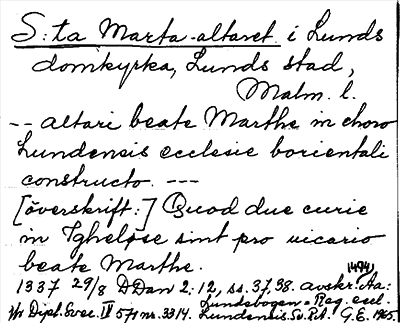 S:ta Marta-altaret i Lunds
domkyrka, Lunds stad,
Malm. l.
-- altari beate Marthe in choro
Lundensis ecclesie borientali
constructo. ---
[överskrift:] Quod due curie
in Igheløse sint pro uicario
beate Marthe.
(1494)
1337 29/8 DDan 2:12, ss. 37, 38. avskr. Aa:
Lundebogen = Reg. eccl.
Dipl. Svec. IV 571 nr. 3314. Lundensis. Sv. RA. G.E. 1965.